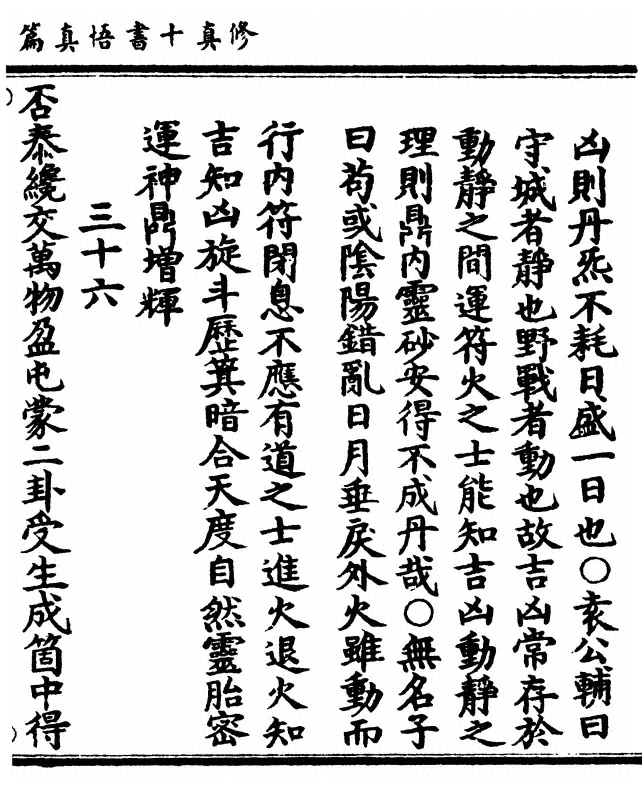 修真十書悟真篇
凶則丹炁不耗日盛一日也○袁公輔曰
守城者靜也野戰者動也故吉凶常存於
動靜之間運符火之士能知吉凶動靜之
理則鼎內靈砂安得不成丹哉○無名子
曰苟或陰陽錯亂日月乖戾外火雖動而
行內符閉息不應有道之士進火退火知
吉知凶旋斗歷箕暗合天度自然靈胎密
運神鼎增輝
三十六
否泰纔交萬物盈屯蒙二卦受生成箇中得